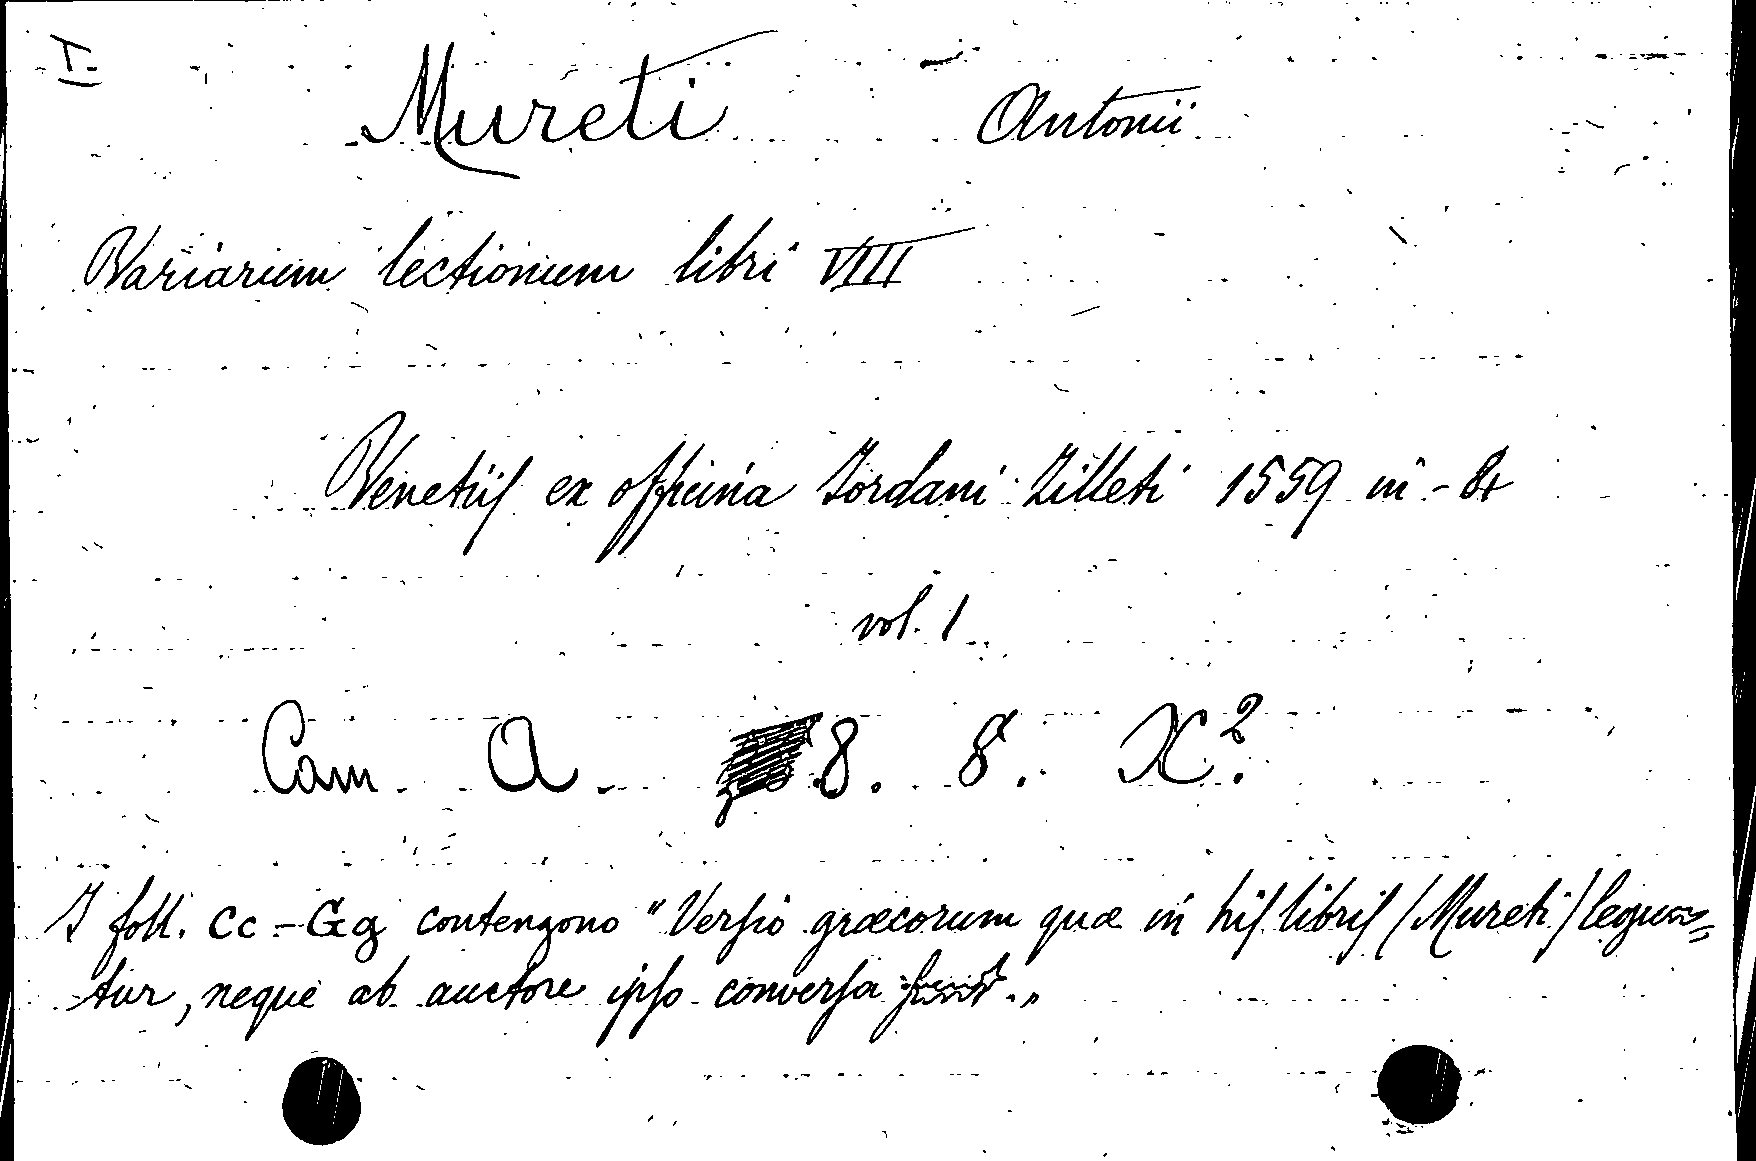 I.
Mureti Antonii
Variarum lectionum libri VIII
Venetiiſ ex officina Iordani Zilleti 1559 in-8º
vol. 1
Cam. A. 8. 8. X².
I foll. Cc-Gg contengono "Verſio græcorum quæ in hiſ libriſ (Mureti) legun=
tur, neque ab auctore ipſo converſa ſunt."